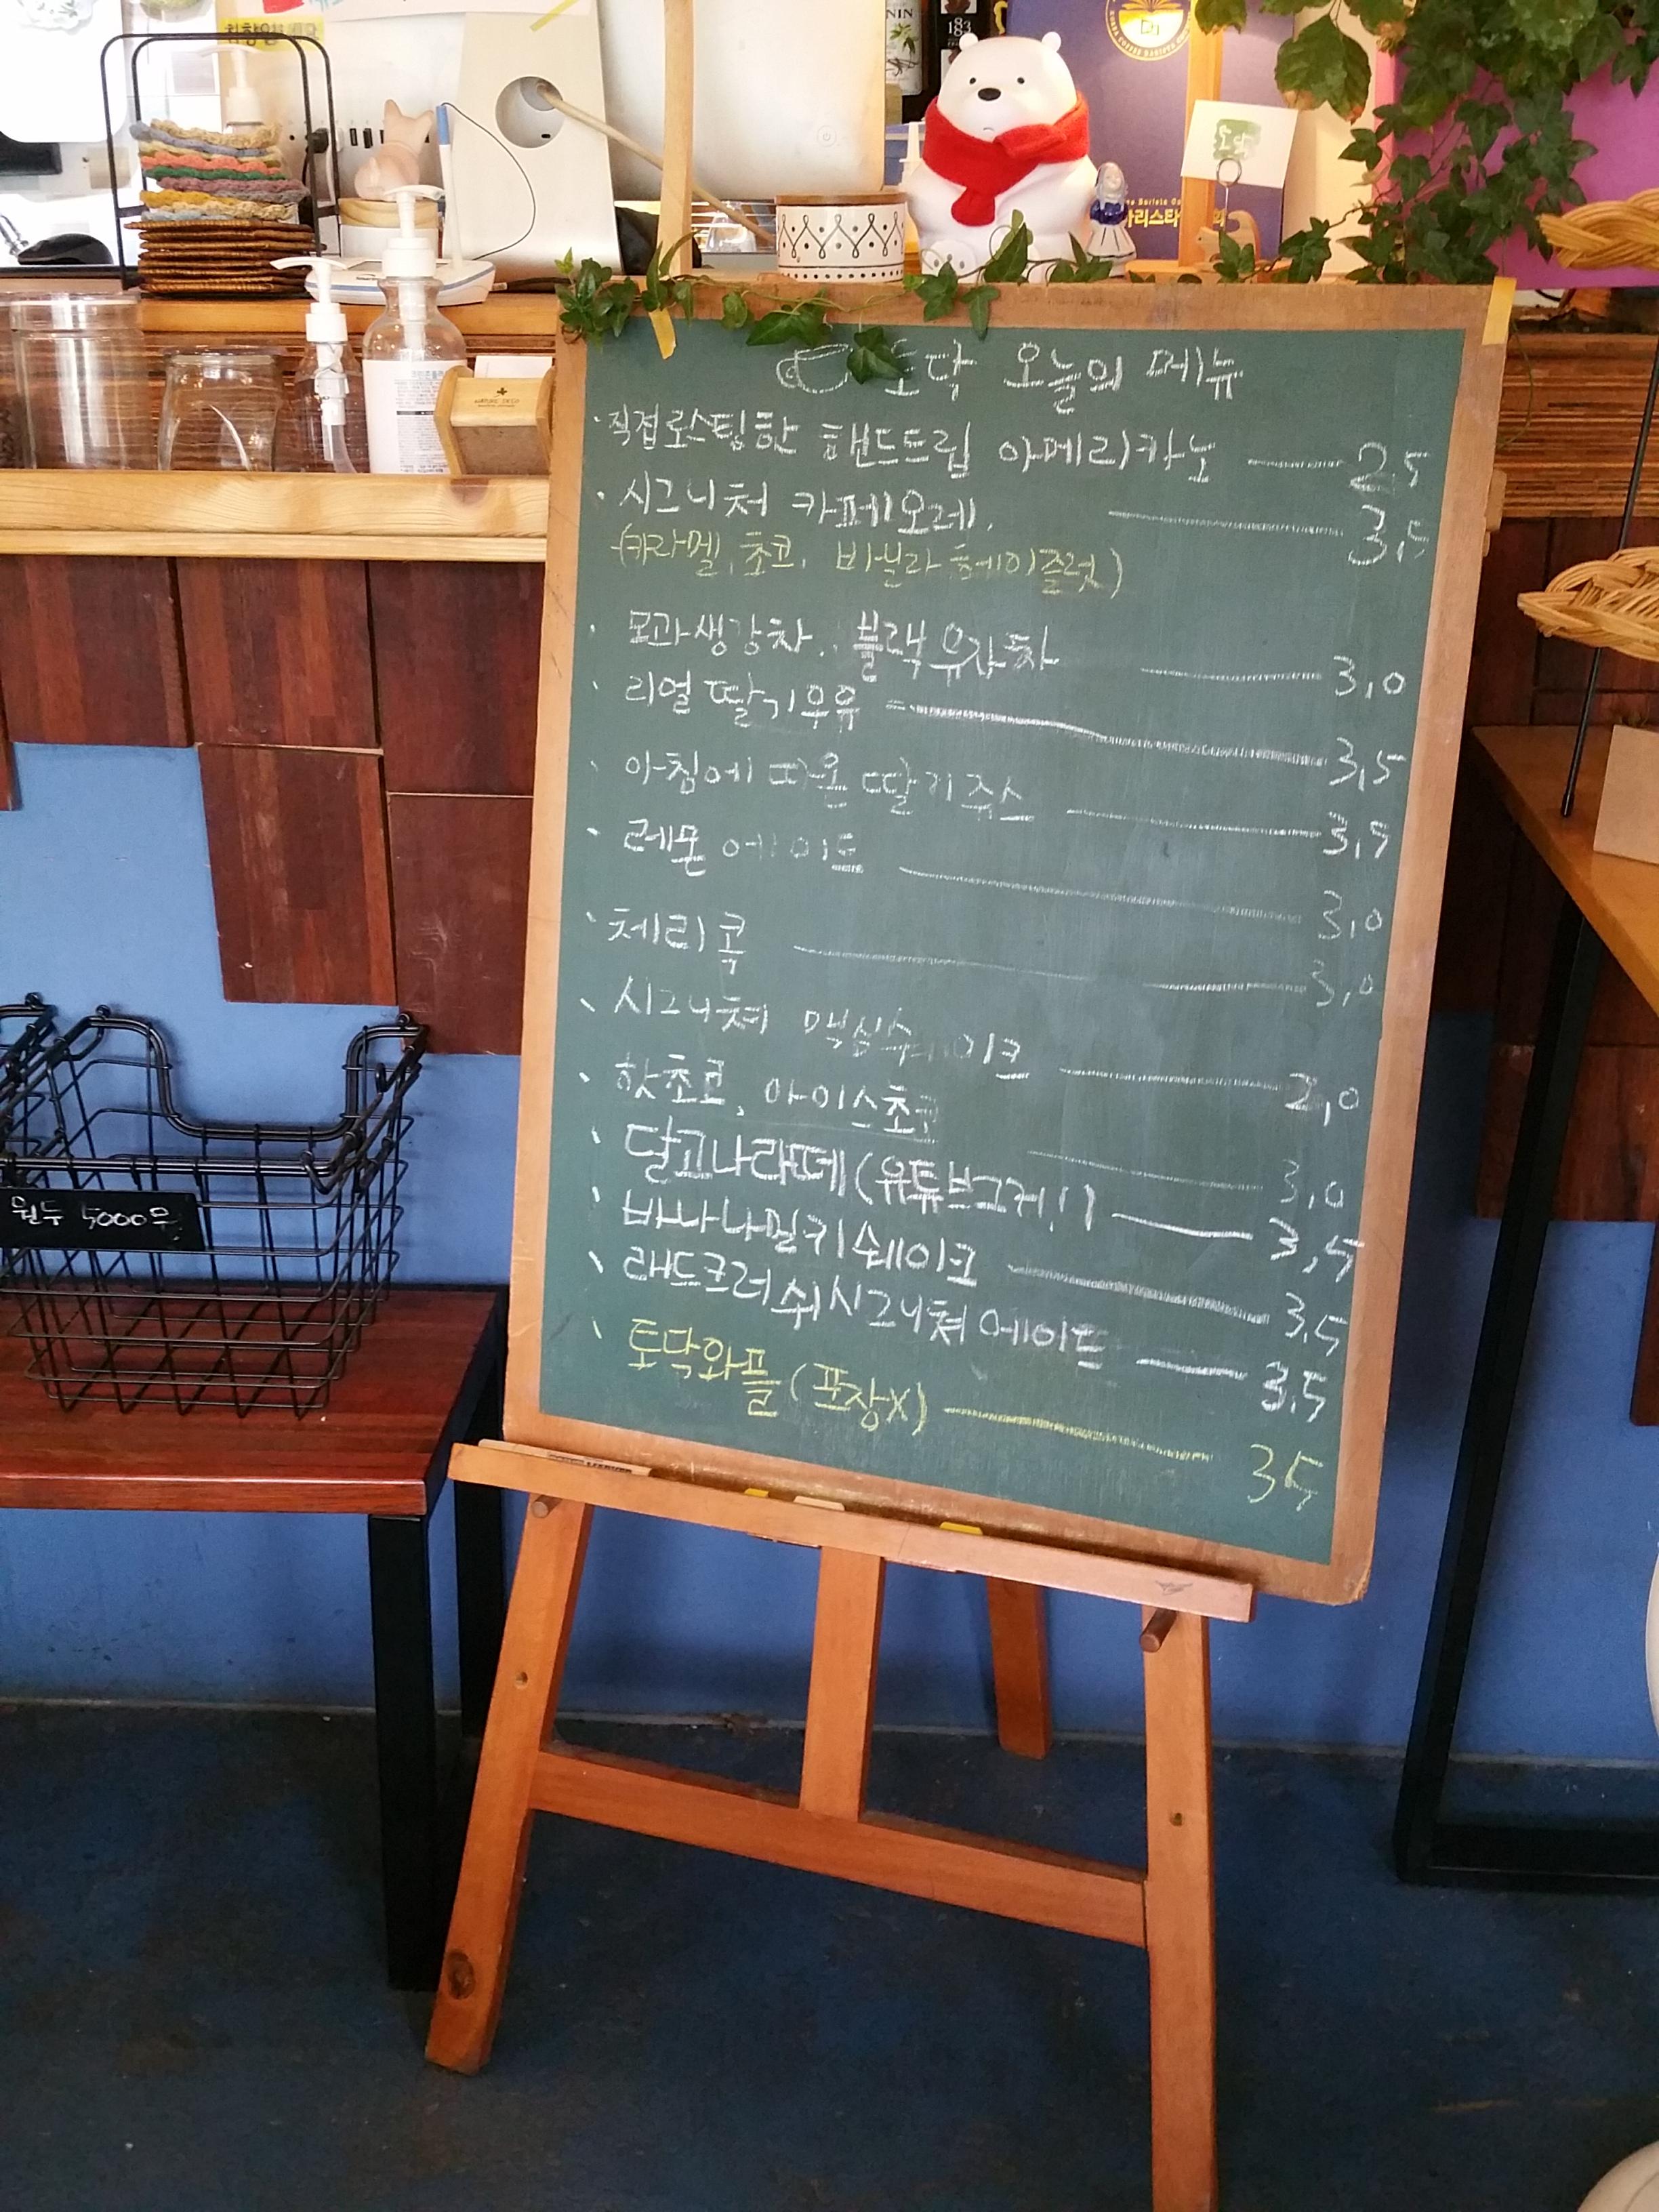 NIN
183
바리스타
토닥
토닥 오늘의 메뉴
·직접로스팅한 핸드드립 아메리카노 — 2.5
·시그니처 카페오레. — 3.5
(카라멜, 초코, 바닐라 헤이즐럿)
·모과생강차, 블랙유자차 — 3,0
·리얼 딸기우유 — 3,5
·아침에 따온 딸기쥬스 — 3,5
·레몬 에이드 — 3,0
·체리콕 — 3,0
·시그니쳐 맥심쉐이크 — 2,0
·핫초코, 아이스초코 — 3,0
·달고나라떼(유튜브그거!!) — 3,5
·바나나밀키쉐이크 — 3,5
·래드크러쉬시그니쳐에이드 — 3,5
·토닥와플(포장X) — 3.5
원두 5000원